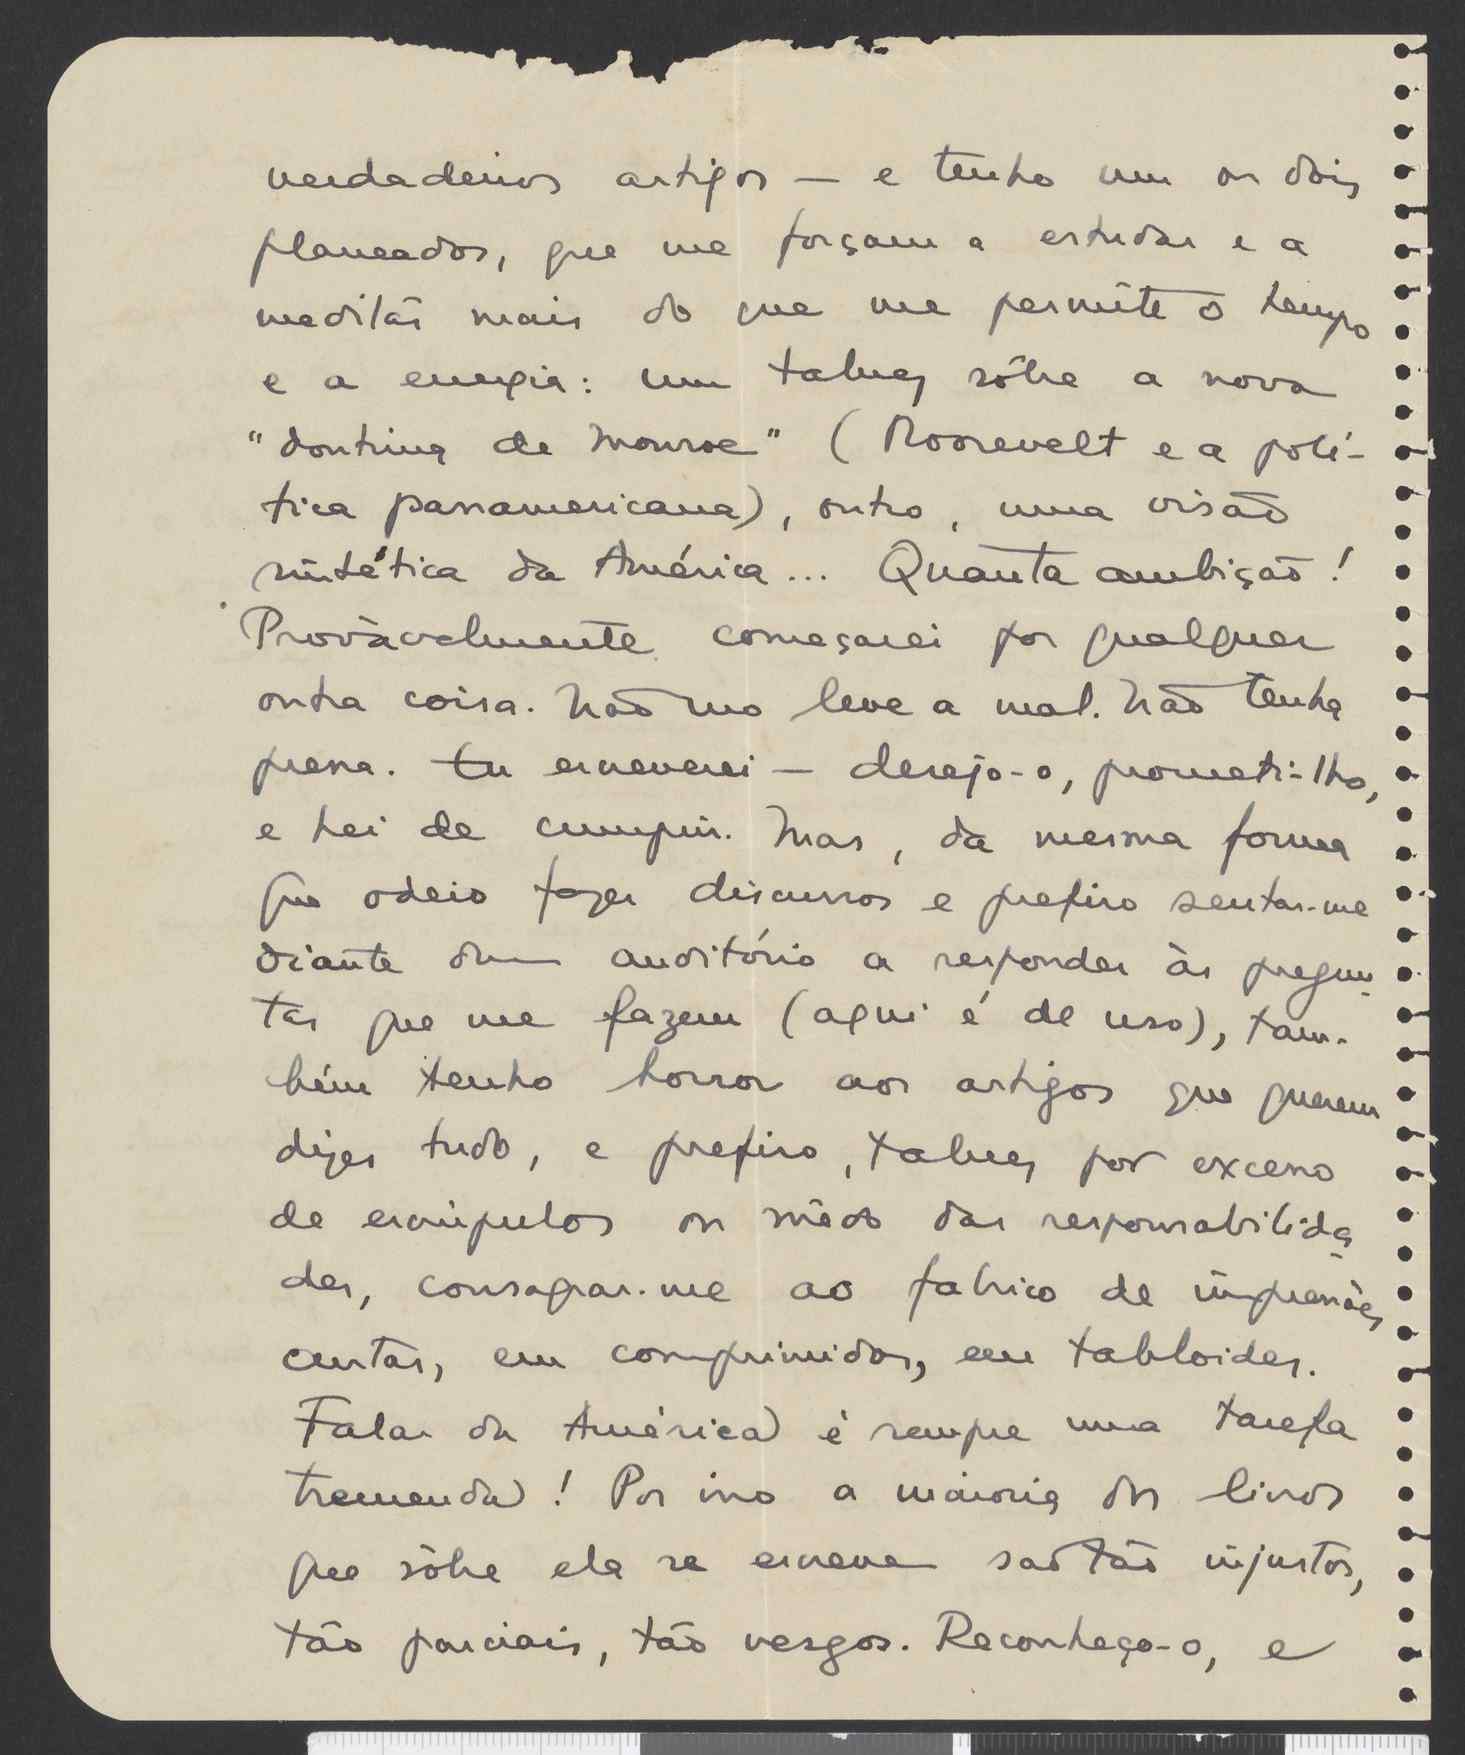 verdadeiros artigos — e tenho um ou dois
planeados, que me forçam a estudar e a
meditar mais do que me permite o tempo
e a energia: um talvez sôbre a nova
"doutrina de Monroe" (Roosevelt e a polí-
tica panamericana), outro, uma visão
sintética da América... Quanta ambição!
Provàvelmente começarei por qualquer
outra coisa. Não mo leve a mal. Não tenha
pressa. Eu escreverei — desejo-o, prometi-lho,
e hei de cumprir. Mas, da mesma forma
que odeio fazer discursos e prefiro sentar-me
diante dum auditório a responder às pregun-
tas que me fazem (aqui é de uso), tam-
bém tenho horror aos artigos que querem
dizer tudo, e prefiro, talvez por excesso
de escrúpulos ou mêdo das responsabilida-
des, consagrar-me ao fabrico de impressões
curtas, em comprimidos, em tabloides.
Falar da América é sempre uma tarefa
tremenda! Por isso a maioria dos livros
que sôbre ela se escreve são tão injustos,
tão parciais, tão vesgos. Reconheço-o, e